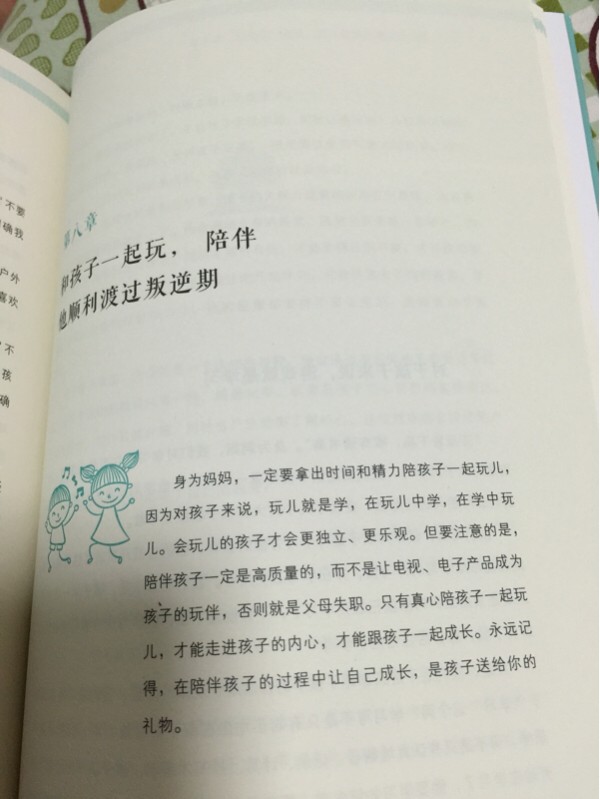 "不要
确我
户外
喜欢
"不
孩
确
第八章
和孩子一起玩，陪伴
他顺利渡过叛逆期
身为妈妈，一定要拿出时间和精力陪孩子一起玩儿，
因为对孩子来说，玩儿就是学，在玩儿中学，在学中玩
儿。会玩儿的孩子才会更独立、更乐观。但要注意的是，
陪伴孩子一定是高质量的，而不是让电视、电子产品成为
孩子的玩伴，否则就是父母失职。只有真心陪孩子一起玩
儿，才能走进孩子的内心，才能跟孩子一起成长。永远记
得，在陪伴孩子的过程中让自己成长，是孩子送给你的
礼物。